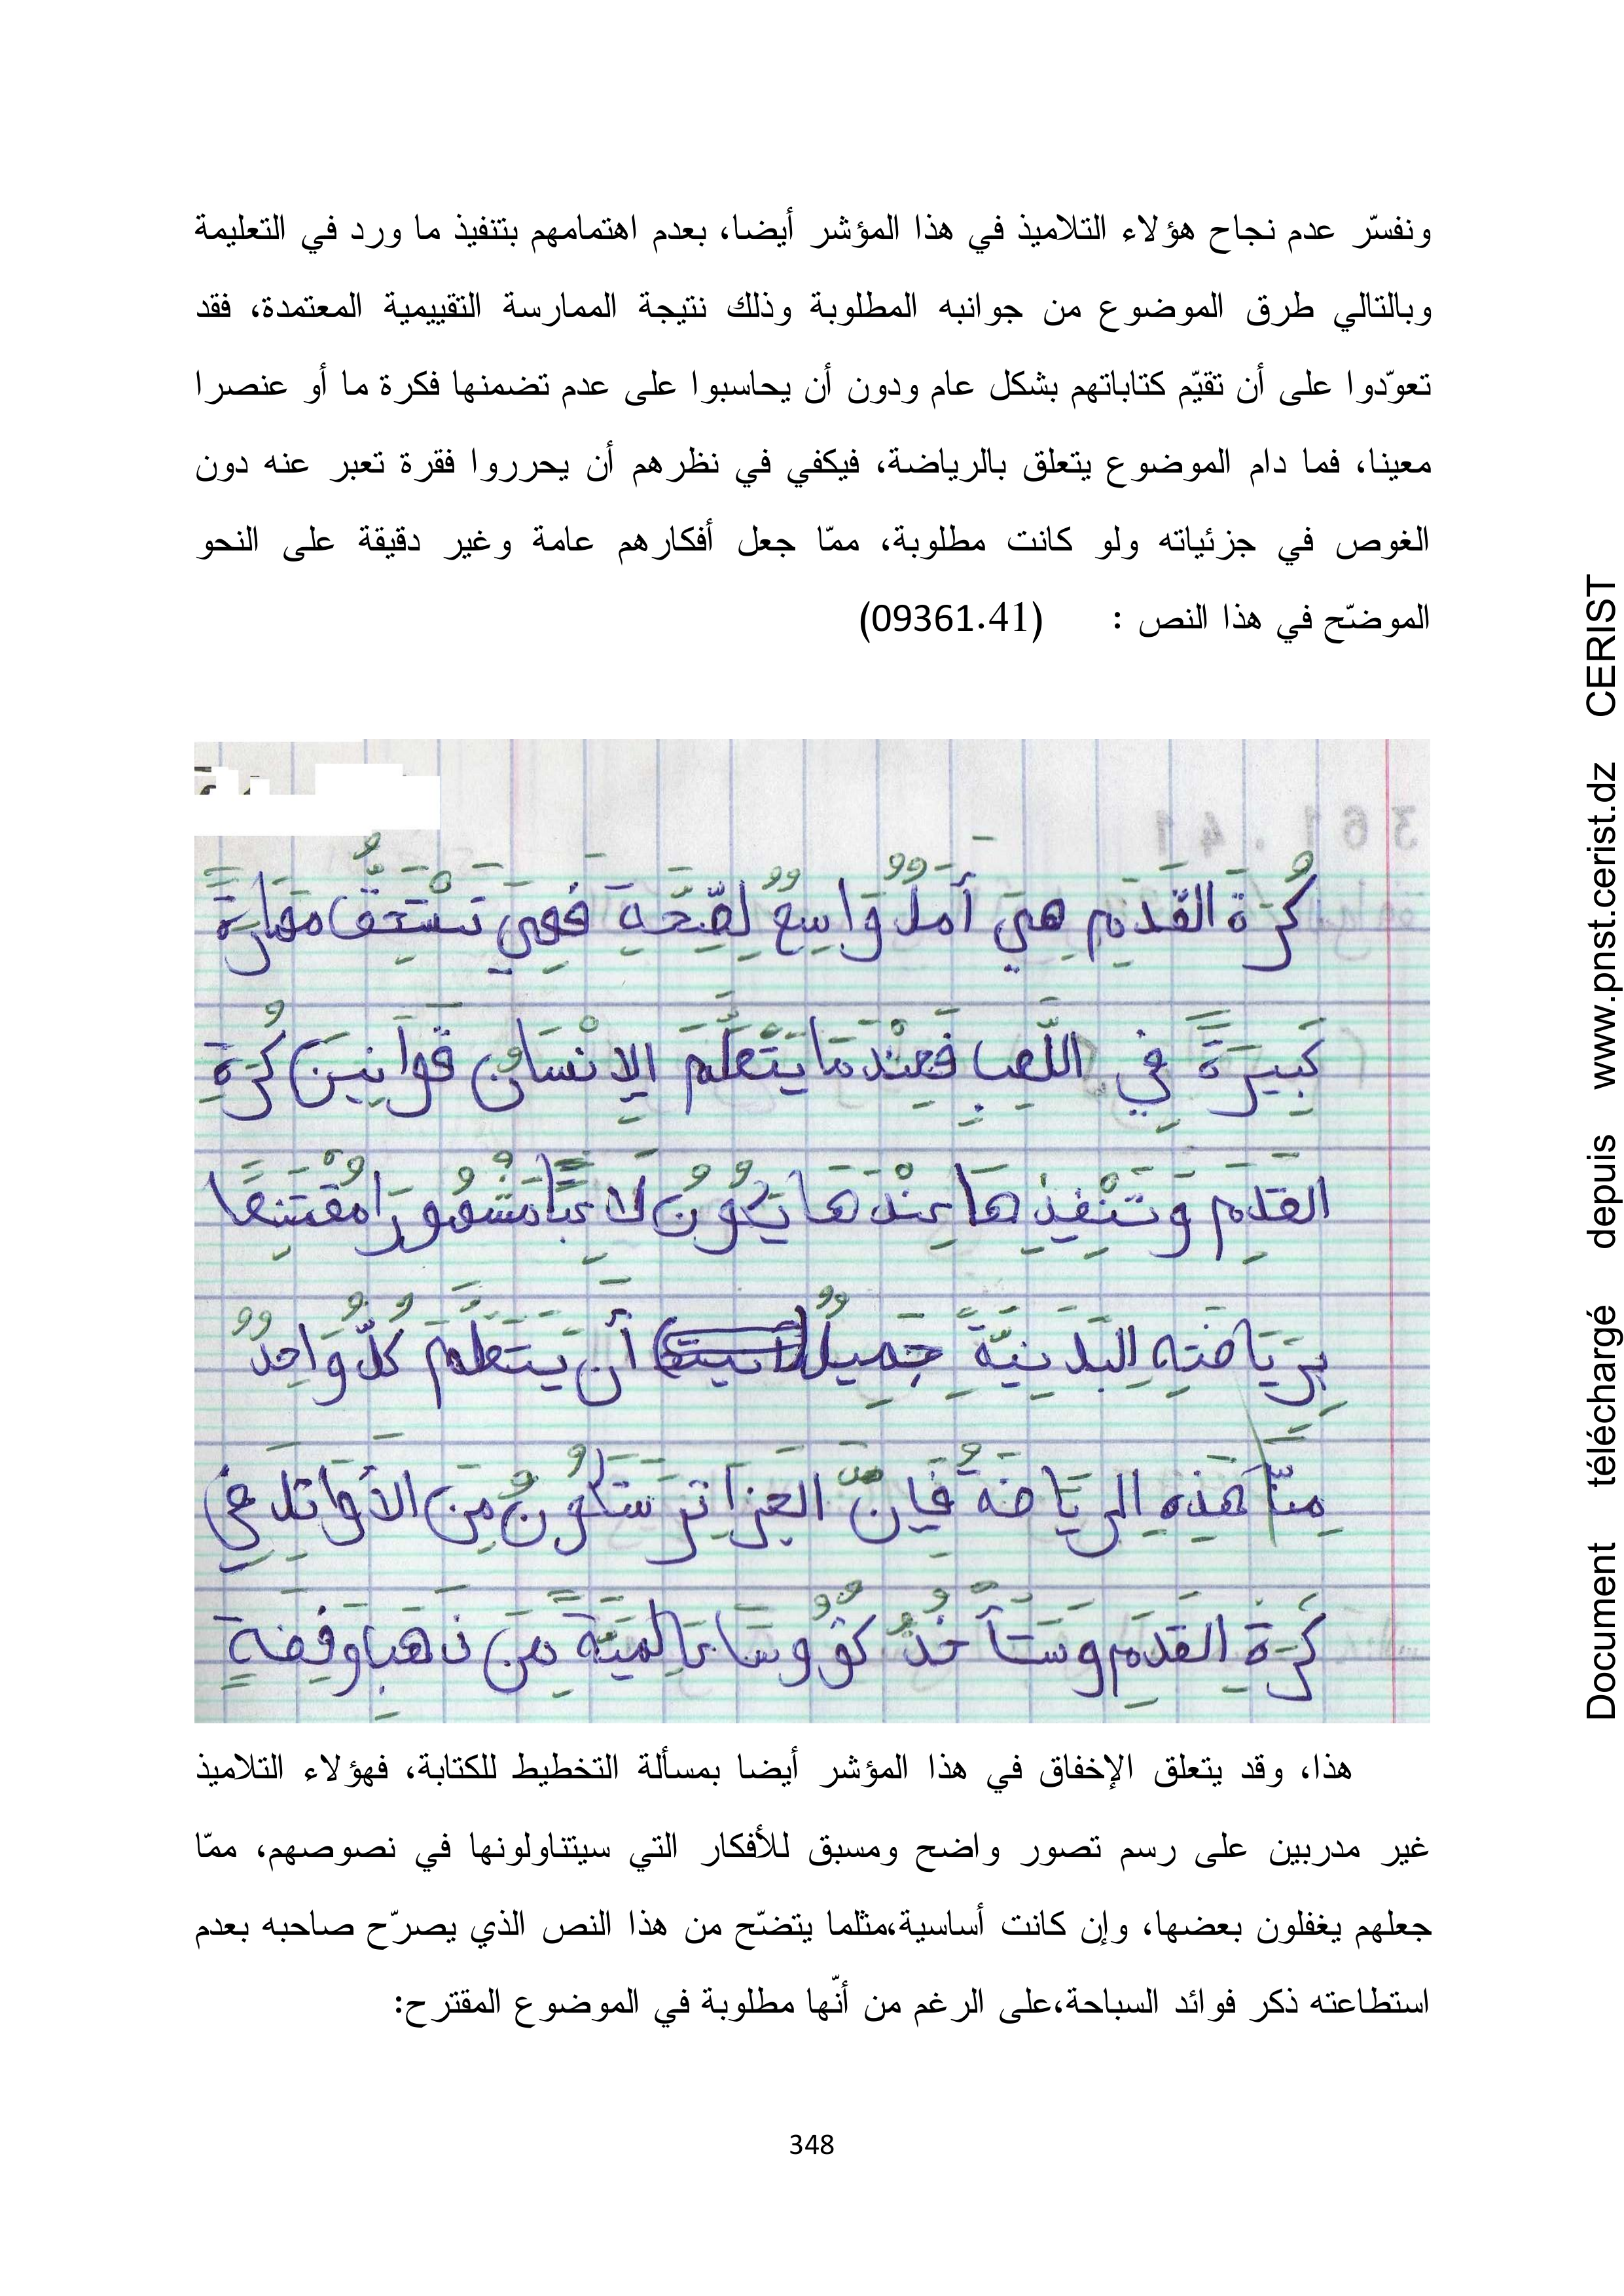 ونفسّر عدم نجاح هؤلاء التلاميذ في هذا المؤشر أيضا، بعدم اهتمامهم بتنفيذ ما ورد في التعليمة
وبالتالي طرق الموضوع من جوانبه المطلوبة وذلك نتيجة الممارسة التقييمية المعتمدة، فقد
تعوّدوا على أن تقيّم كتاباتهم بشكل عام ودون أن يحاسبوا على عدم تضمنها فكرة ما أو عنصرا
معينا، فما دام الموضوع يتعلق بالرياضة، فيكفي في نظرهم أن يحرروا فقرة تعبر عنه دون
الغوص في جزئياته ولو كانت مطلوبة، ممّا جعل أفكارهم عامة وغير دقيقة على النحو
الموضّح في هذا النص : (09361.41)
كُرَة القَدَمِ هِيَ أَمَلٌ وَاسِعٌ لِصِّحَةِ فَهِيَ تَسْتَحِقُّ مهَارَةً
كَبِيرَةً فِي اللَّعِبِ فَعِنْدَمَا يَتَعَلَّمَ الإِنْسَانُ قَوَانِينَ كُرَةِ
القَدَمِ وَتَنْفِيذِهَا عِنْدَهَا يَكُونُ لاَعِبًا مَشْهُورَا مُقْتَنِعًا
بِرِيَاضَتِهِ البَدَنِيَّةِ جَمِيلٌ أَن يَتَعَلَّمَ كُلُّ وَاحِدٌ
مِنَّا هَذِهِ الرِيَاضَةُ فَإِنَّ الجَزَائِرَ سَتَكُونُ مِنَ الأَوَائِلِ فِي
كُرَةِ القَدَمِ وَسَتَأْخُذُ كُؤُوسًا عَالَمِيَّةً مِنَ ذَهَبٍ وَفِضَةٍ
هذا، وقد يتعلق الإخفاق في هذا المؤشر أيضا بمسألة التخطيط للكتابة، فهؤلاء التلاميذ
غير مدربين على رسم تصور واضح ومسبق للأفكار التي سيتناولونها في نصوصهم، ممّا
جعلهم يغفلون بعضها، وإن كانت أساسية،مثلما يتضّح من هذا النص الذي يصرّح صاحبه بعدم
استطاعته ذكر فوائد السباحة،على الرغم من أنّها مطلوبة في الموضوع المقترح:
348
Document téléchargé depuis www.pnst.cerist.dz CERIST